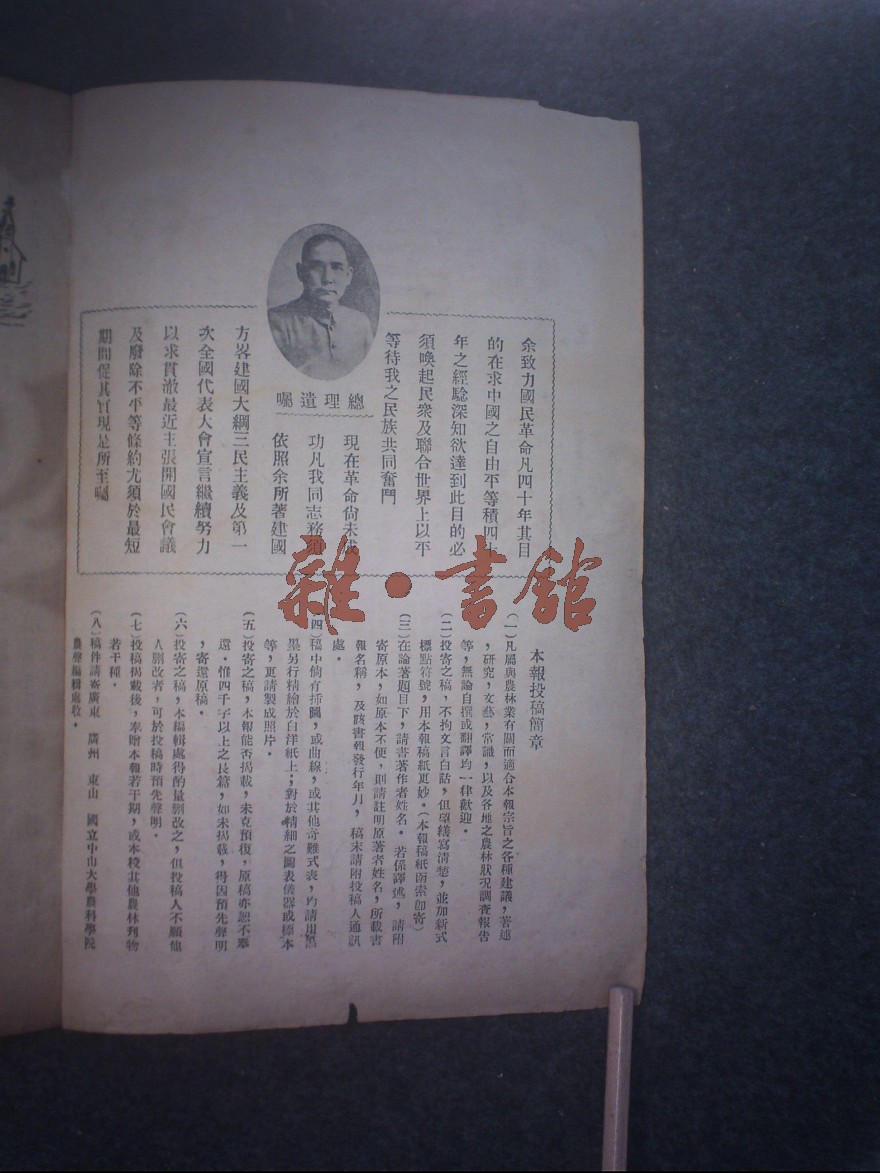 總理遺囑
余致力國民革命凡四十年其目
的在求中國之自由平等積四十
年之經驗深知欲達到此目的必
須喚起民衆及聯合世界上以平
等待我之民族共同奮鬥
現在革命尙未成
功凡我同志務須
依照余所著建國
方畧建國大綱三民主義及第一
次全國代表大會宣言繼續努力
以求貫澈最近主張開國民會議
及廢除不平等條約尤須於最短
期間促其實現是所至囑
雜·書館
本報投稿簡章
(一)凡屬與農林業有關而適合本報宗旨之各種建議,著述
,研究,文藝,常識,以及各地之農林狀況調査報告
等,無論自撰或翻譯均一律歡迎。
(二)投寄之稿,不拘文言白話,但望繕寫清楚,並加新式
標點符號,用本報稿紙更妙。(本報稿紙函索即寄)
(三)在論著題目下,請書著作者姓名。若係譯述,請附
寄原本,如原本不便,則請註明原著者姓名,所載書
報名稱,及該書報發行年月,稿末請附投稿人通訊
處。
(四)稿中倘有揷圖,或曲線,或其他奇難式表,均請用黑
墨另行精繪於白洋紙上;對於精細之圖表儀器或標本
等,更請製成照片。
(五)投寄之稿,本報能否揭載,未克預復,原稿亦恕不奉
還。惟四千字以上之長篇,如未揭載,得因預先聲明
,寄還原稿。
(六)投寄之稿,本編輯處得酌量刪改之,但投稿人不願他
人刪改者,可於投稿時預先聲明。
(七)投稿揭載後,奉贈本報若干期,或本校其他農林刋物
若干種。
(八)稿件請寄廣東 廣州 東山 國立中山大學農科學院
農聲編輯處收。